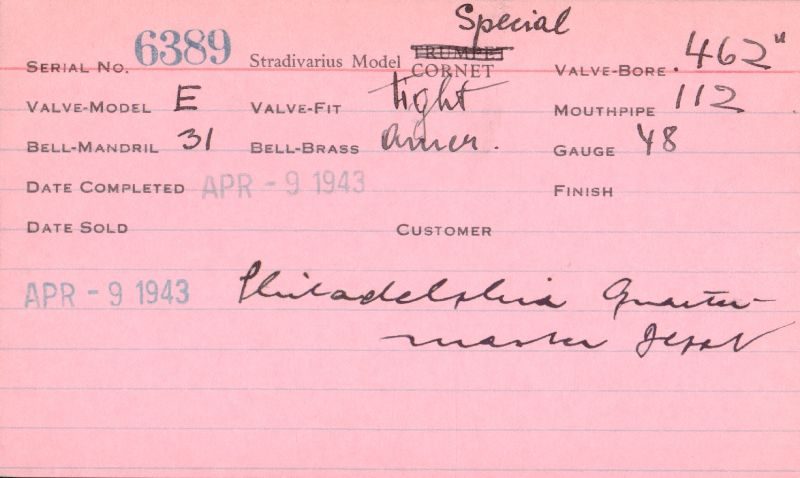 Special
SERIAL NO. 6389 Stradivarius Model TRUMPET CORNET VALVE-BORE .462"
VALVE-MODEL E VALVE-FIT tight MOUTHPIPE 112
BELL-MANDRIL 31 BELL-BRASS amer. GAUGE 48
DATE COMPLETED APR - 9 1943 FINISH
DATE SOLD CUSTOMER
APR - 9 1943 Philadelphia Quarter-
master Depot